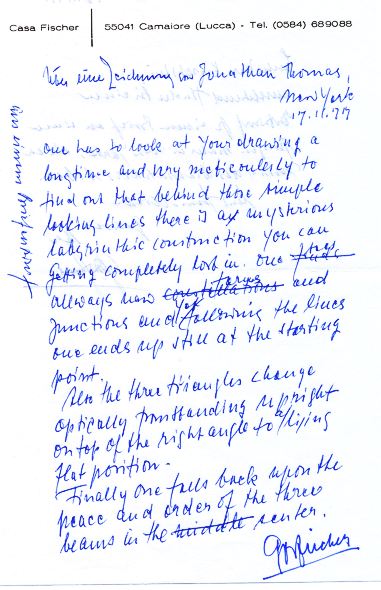 Casa Fischer
55041 Camaiore (Lucca) - Tel. (0584) 689088
Über eine Zeichnung von Jonathan Thomas,
New York
17.11.77
One has to look at Your drawing a
longtime and very meticoulesly to
find out that behind those simple
looking-lines there is a mysterious
labyrinthic construction you can
getting completely lost in. One finds
allways new constellations forms and
junctions and yet following the lines
one ends up still at the starting
point.
Also the three triangles change
optically from standing upright
on top of the right angle to a lying
flat position.
Finally one falls back upon the
peace and order of the three
beams in the middle senter.